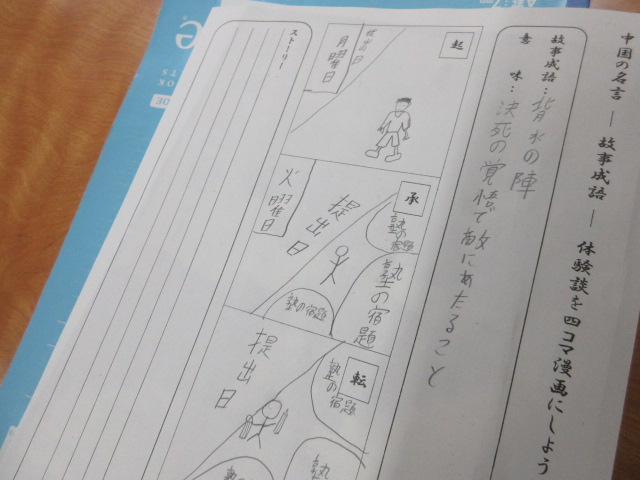 中国の名言 ― 故事成語 ― 体験談を四コマ漫画にしよう
故事成語：背水の陣
意　味：決死の覚悟で敵にあたること
起
提出日
月曜日
承
塾の宿題
塾の宿題
提出日
塾の宿題
火曜日
転
塾の宿題
提出日
塾の
塾
ストーリー
e